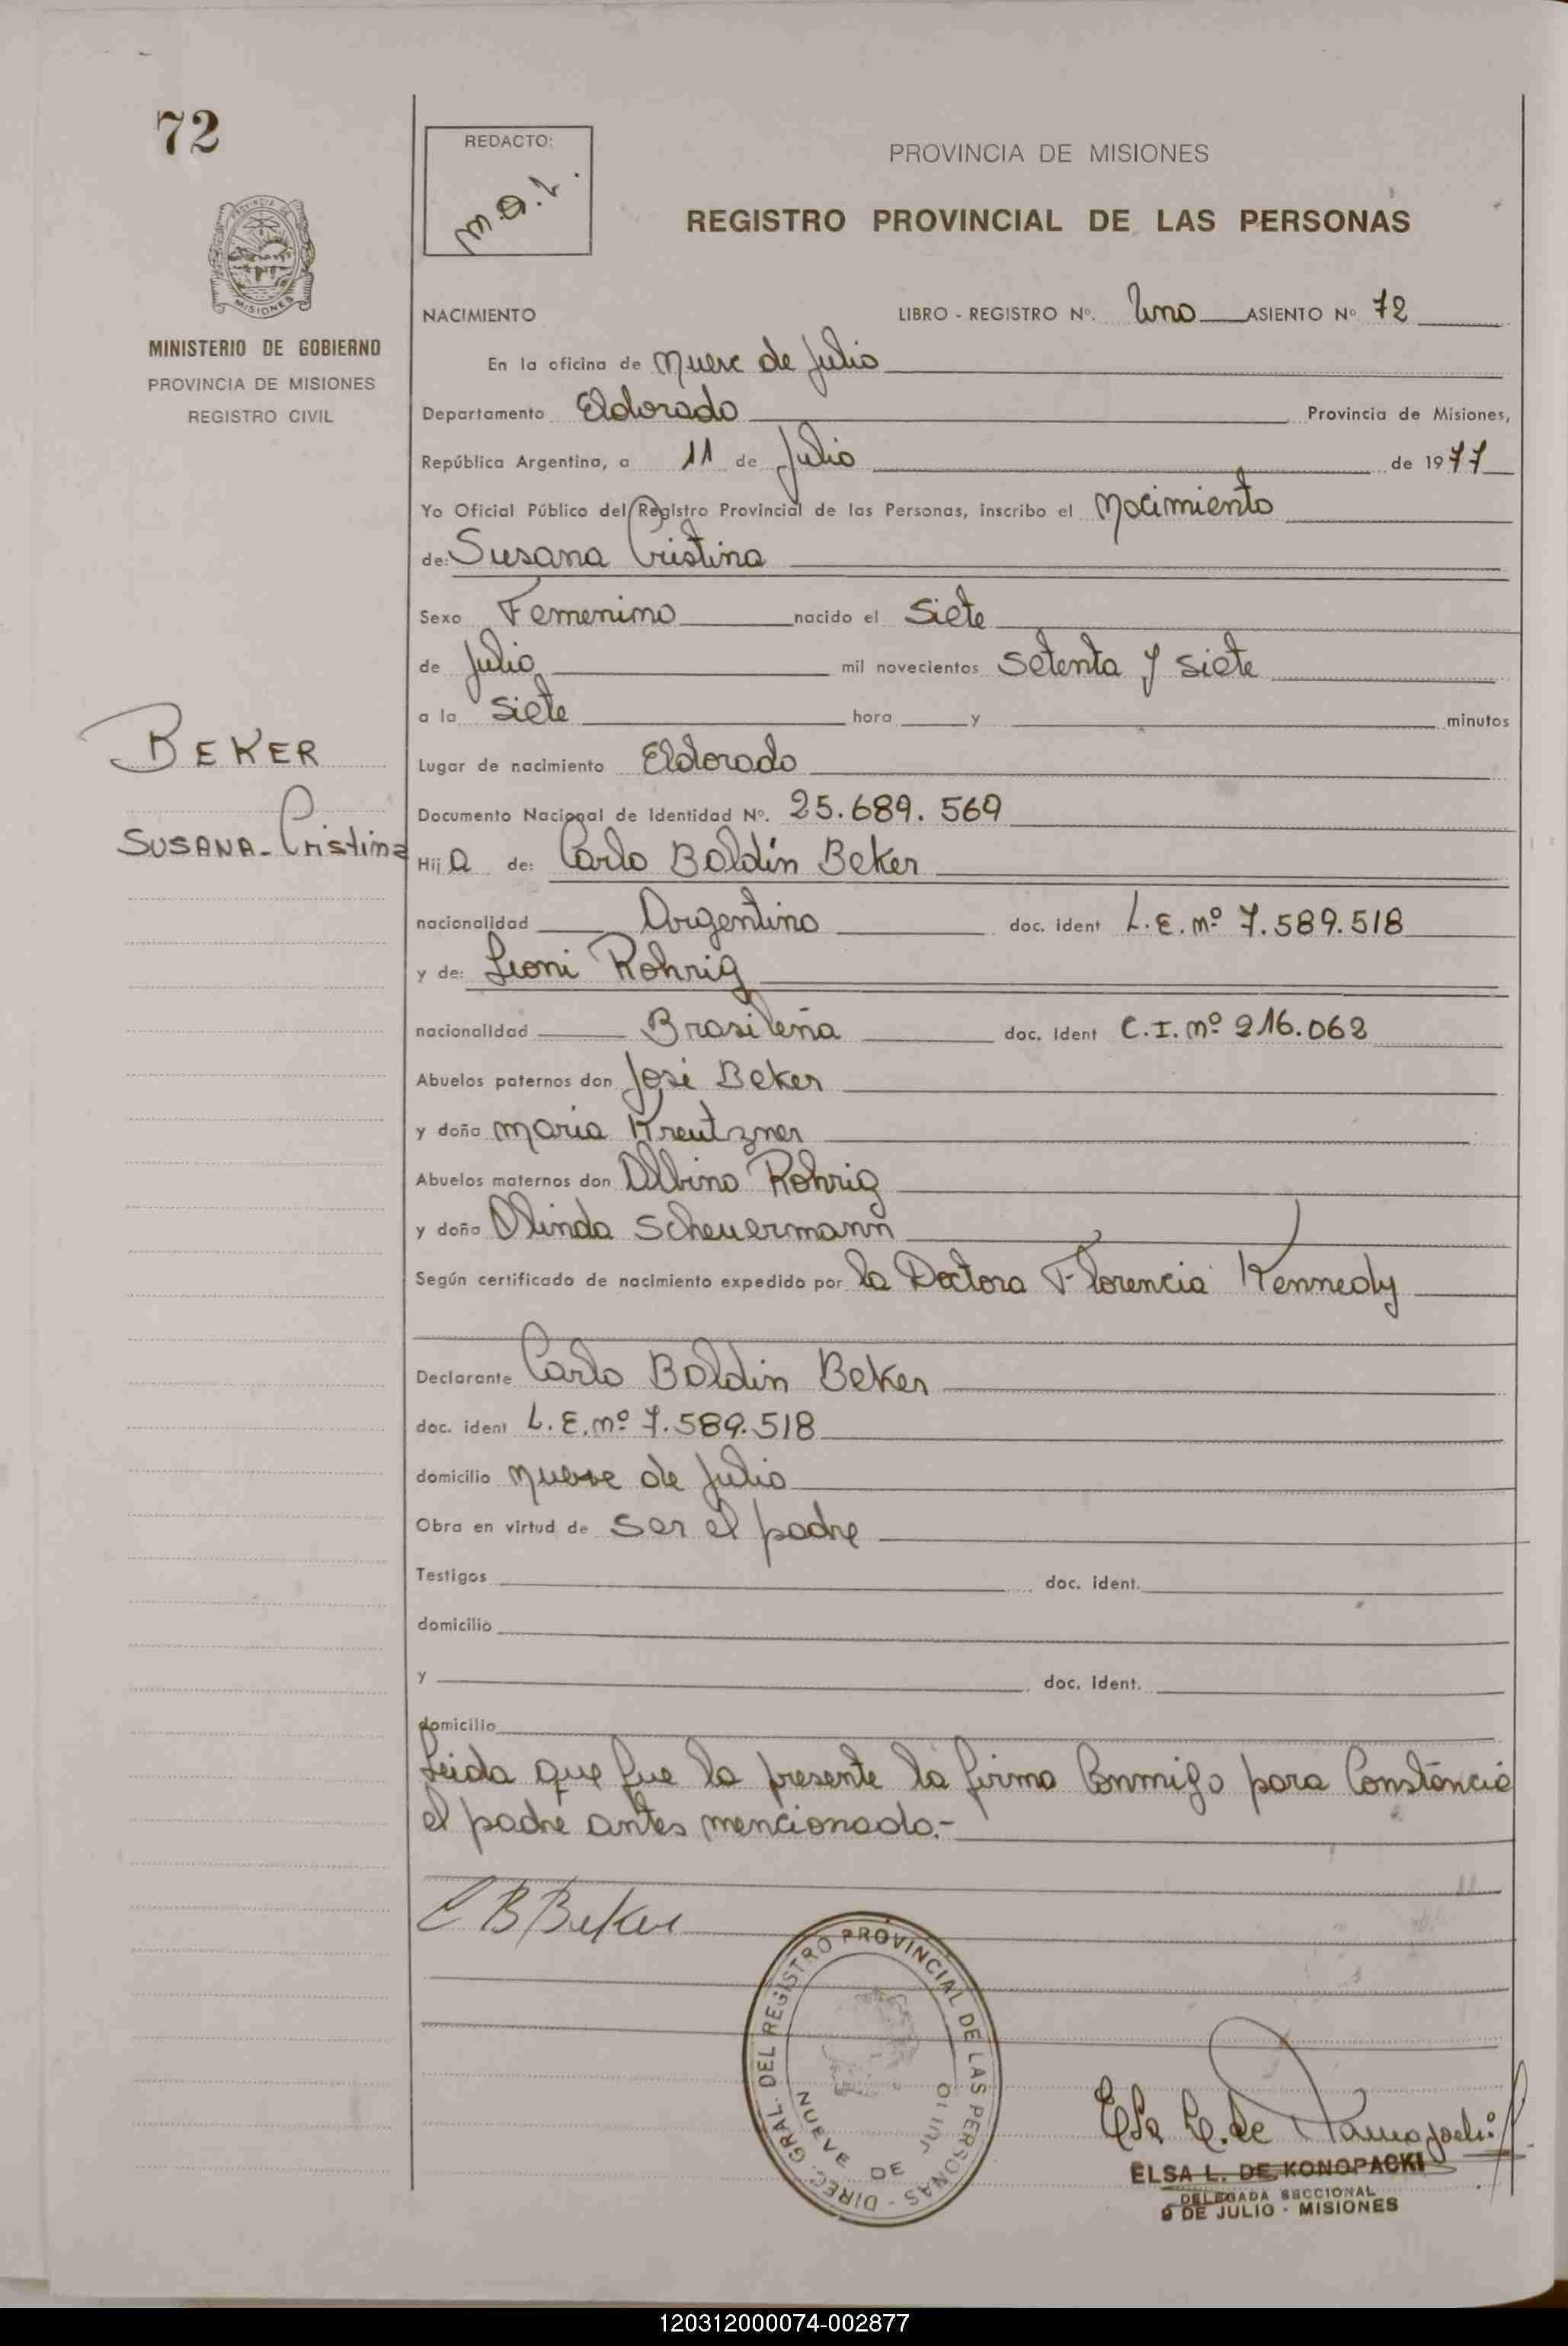 72
REDACTO:
M.O.L.
PROVINCIA DE MISIONES
REGISTRO PROVINCIAL DE LAS PERSONAS
MISIONES
MINISTERIO DE GOBIERNO
PROVINCIA DE MISIONES
REGISTRO CIVIL
NACIMIENTO LIBRO - REGISTRO Nº. Uno ASIENTO Nº 72
En la oficina de Nueve de Julio
Departamento Eldorado Provincia de Misiones,
República Argentina, a 11 de Julio de 1977
Yo Oficial Público del Registro Provincial de las Personas, inscribo el Nacimiento
de: Susana Cristina
Sexo Femenino nacido el Siete
de Julio mil novecientos Setenta y siete
a la Siete hora y minutos
BEKER
SUSANA-Cristina
Lugar de nacimiento Eldorado
Documento Nacional de Identidad Nº. 25.689.569
Hij a de: Carlo Baldin Beker
nacionalidad Argentino doc. ident L.E. Nº 7.589.518
y de: Leoni Rohrig
nacionalidad Brasileña doc. ident C.I. Nº 216.062
Abuelos paternos don José Beker
y doña Maria Kreutzner
Abuelos maternos don Albino Rohrig
y doña Olinda Scheuermann
Según certificado de nacimiento expedido por la Doctora Florencia Kennedy
Declarante Carlo Baldin Beker
doc. ident L.E. Nº 7.589.518
domicilio Nueve de Julio
Obra en virtud de Ser el padre
Testigos doc. ident.
domicilio
y doc. ident.
domicilio
Leida que fue la presente la firma Conmigo para Constancia
el padre antes mencionado.-
C B Beker
DIREC. GRAL. DEL REGISTRO PROVINCIAL DE LAS PERSONAS -
NUEVE DE JULIO
Elsa L. de Konopacki
ELSA L. DE KONOPACKI
DELEGADA SECCIONAL
9 DE JULIO - MISIONES
120312000074-002877